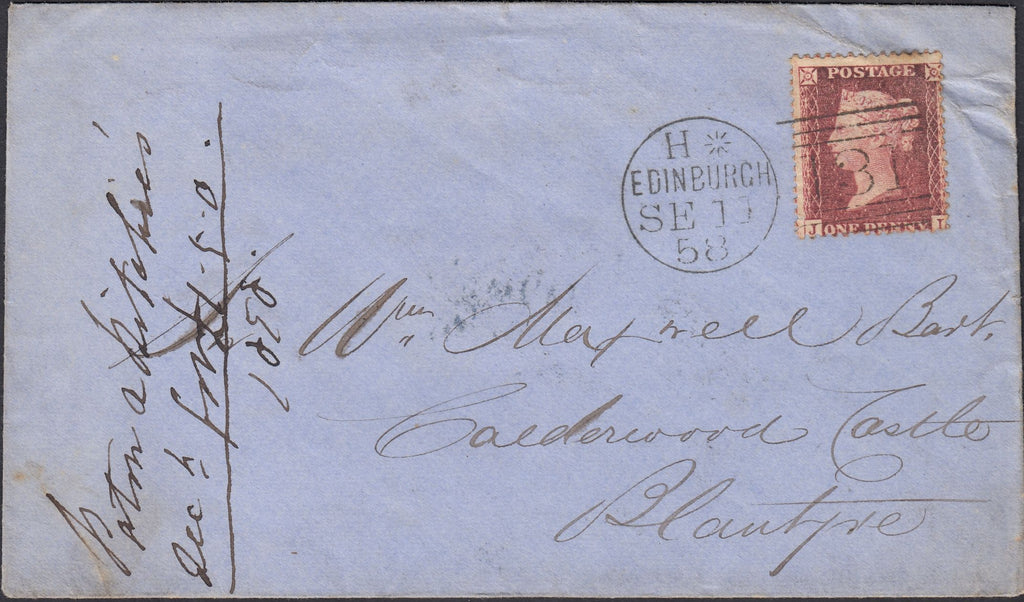 POSTAGE
131
J ONE PENNY I
H
EDINBURGH
SE 11
58
Wm Maxwell Bart.
Calderwood Castle
Blantyre
Paton & Ritchie's
1858.